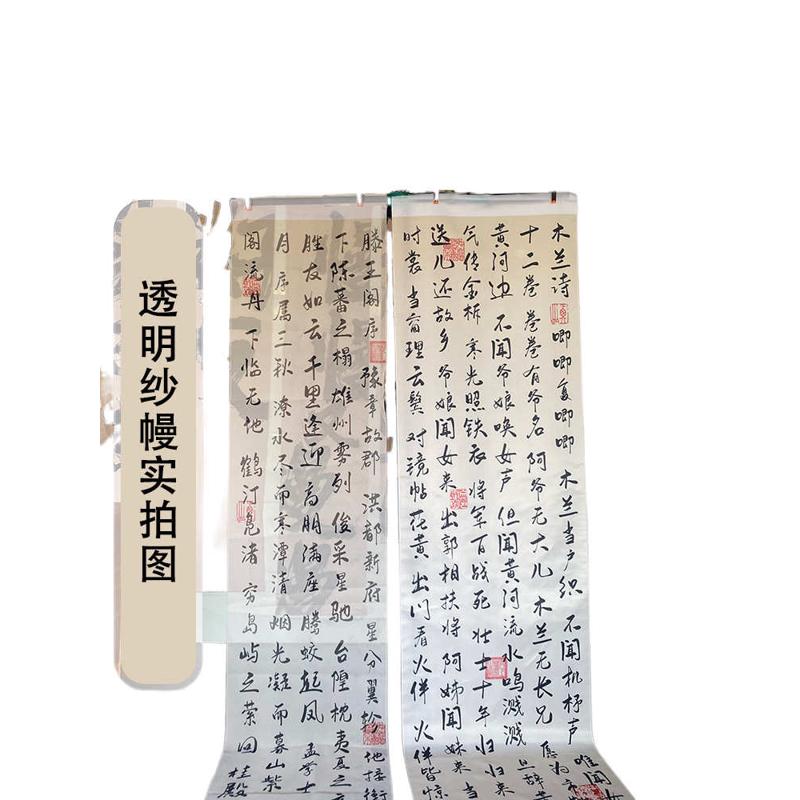 透明纱幔实拍图
木兰诗 唧唧复唧唧 木兰当户织 不闻机杼声 唯闻女
十二卷 卷卷有爷名 阿爷无大儿 木兰无长兄 愿为市
黄河边 不闻爷娘唤女声 但闻黄河流水鸣溅溅 旦辞黄
气传金柝 寒光照铁衣 将军百战死 壮士十年归 归来
送儿还故乡 爷娘闻女来 出郭相扶将 阿姊闻妹来 当
时裳 当窗理云鬓 对镜帖花黄 出门看火伴 火伴皆惊
滕王阁序 豫章故郡 洪都新府 星分翼轸 地接衡
下陈蕃之榻 雄州雾列 俊采星驰 台隍枕夷夏之
胜友如云 千里逢迎 高朋满座 腾蛟起凤 孟学士
月 序属三秋 潦水尽而寒潭清 烟光凝而暮山紫
阁流丹 下临无地 鹤汀凫渚 穷岛屿之萦回 桂殿